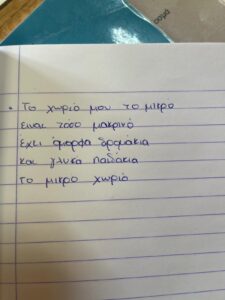 • Το χωριό μου το μικρο
Είναι τοσο μακρινό
Εχει όμορφα δρομάκια
Και γλυκα παιδάκια
Το μικρο χωριό